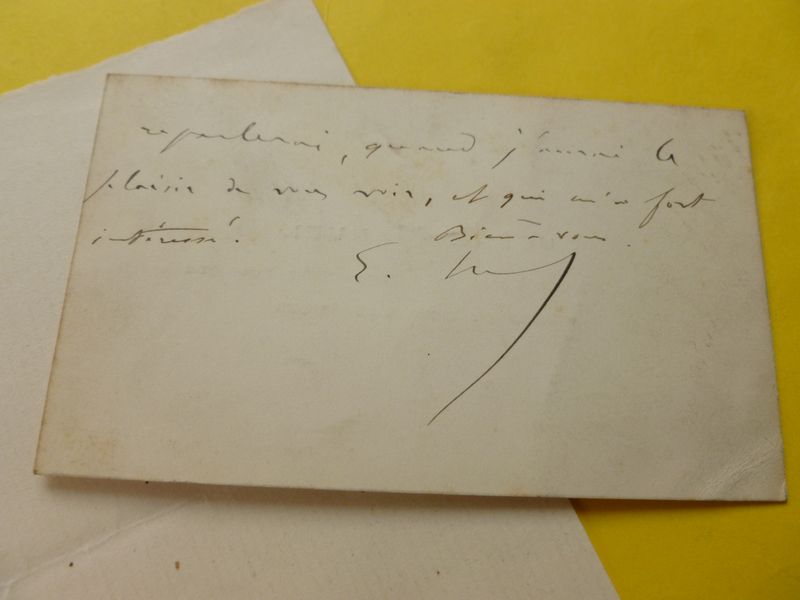 reparlerai, quand j'aurai le
plaisir de vous voir, et qui m'a fort
intéressé. Bien à vous.
E.